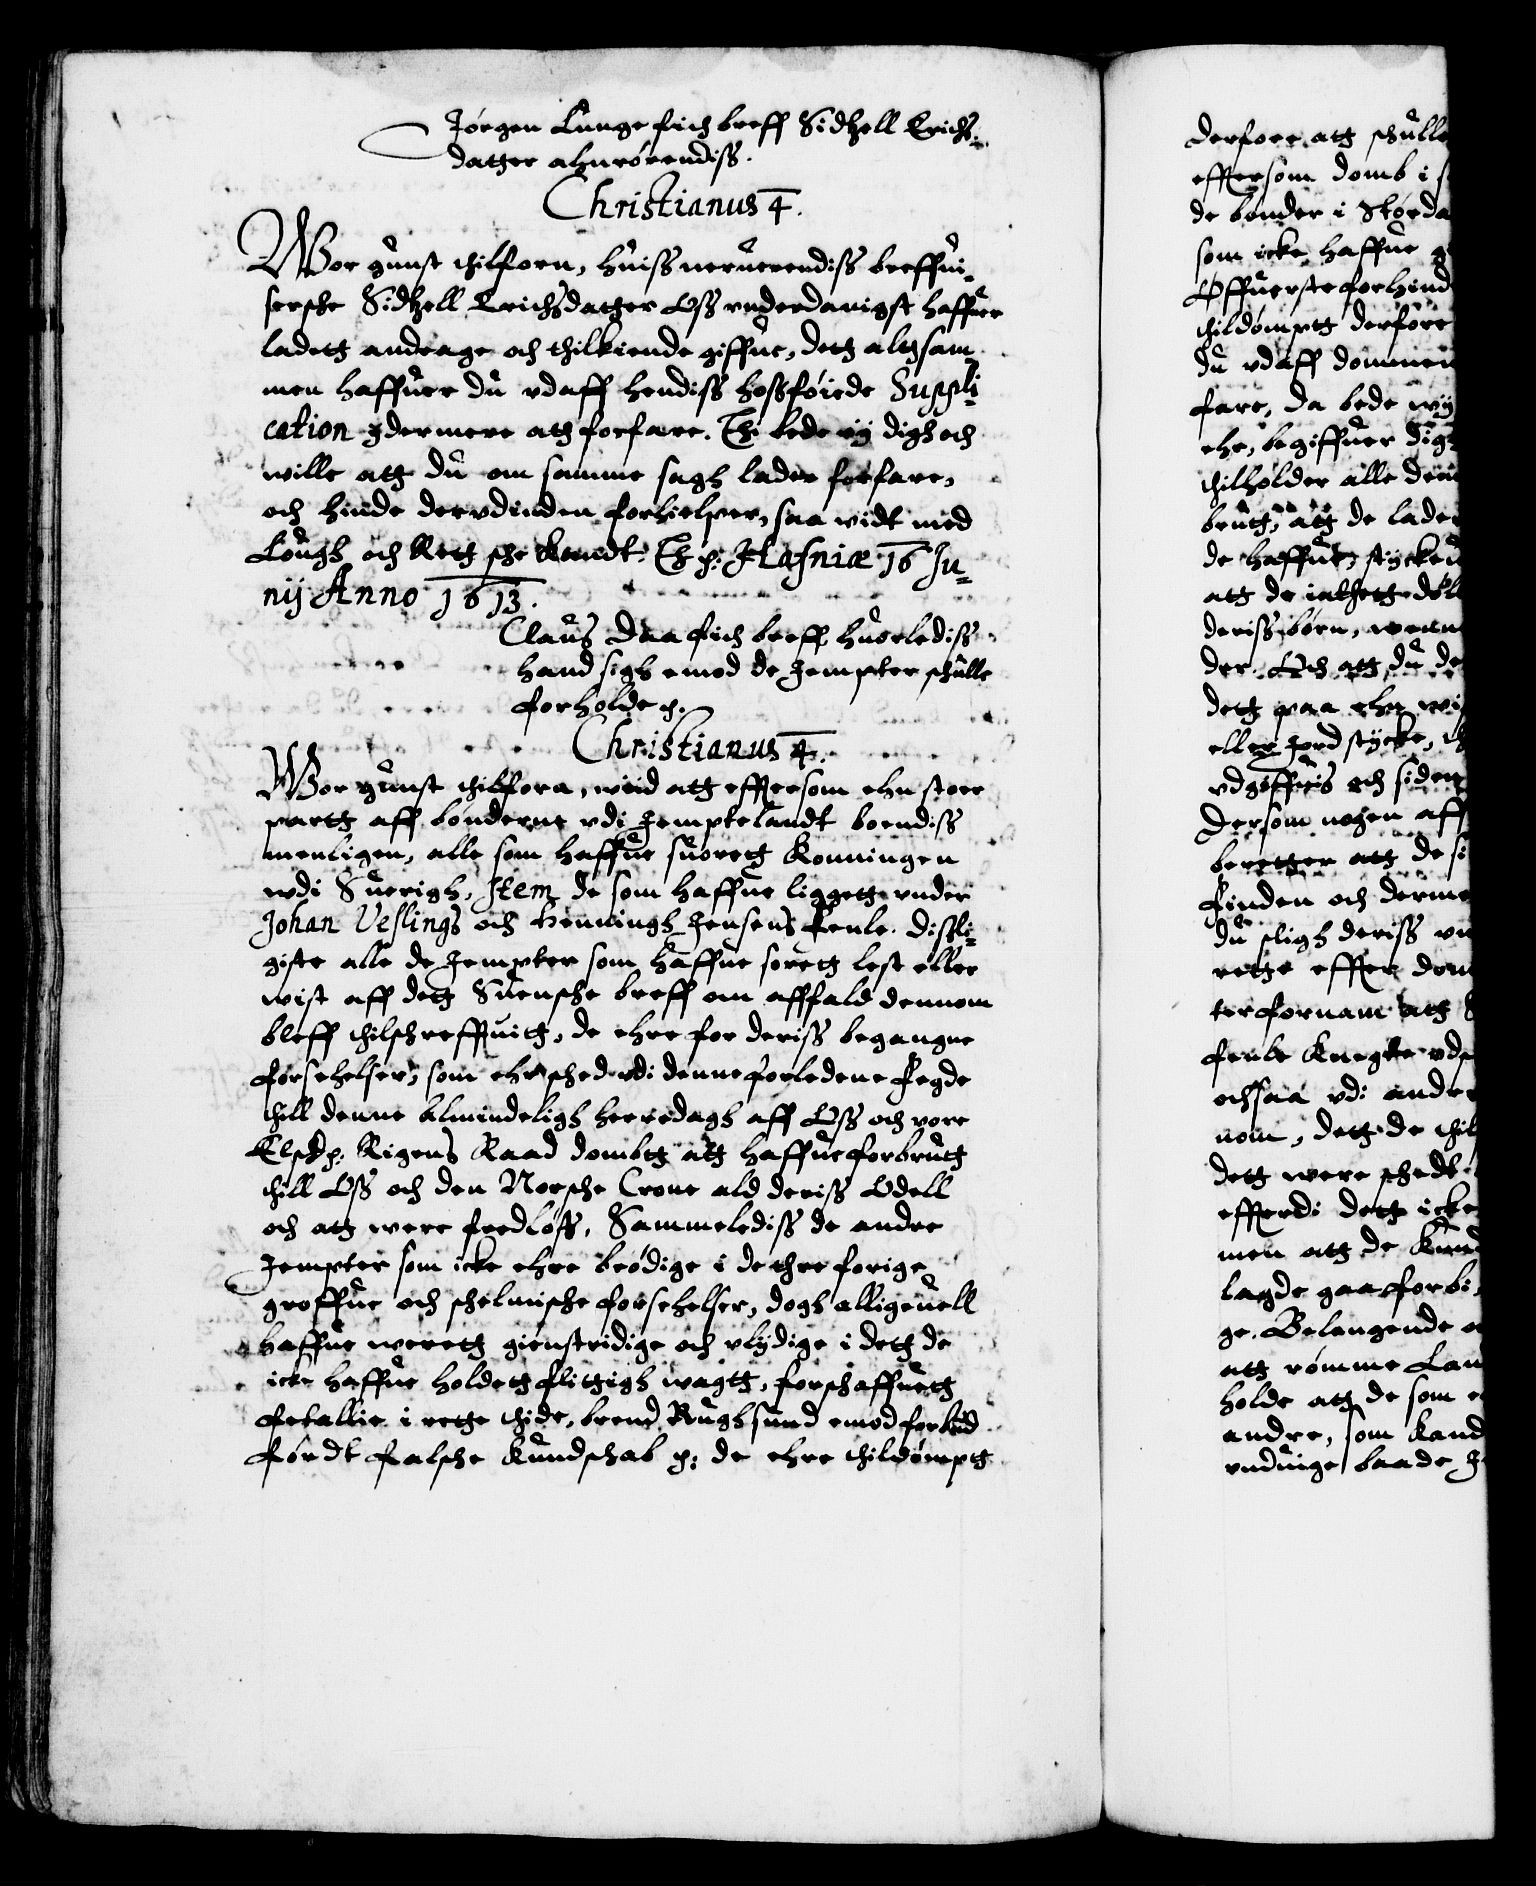 Jørgen Lunge fich breff Sidzell Erichs-
datter ahnrørendiss.
Christianus 4.
Wor gunst thilforn, huiss neruerendiss breffui-
sersche Sidzell Erichsdather Oss vnderdanigst haffuer
ladett andrage och thilkiende giffue, dett altsam-
men haffuer du vdaff hendiss hossføiede Suppli-
cation ydermere att forfare. Thi bede vij digh och
wille att du om samme sagh lader forfare,
och hinde dervdinden forhielper, saa vidt med
Lough och Rett sche kandt. Th p: Hafniæ 16 Ju-
nij Anno 1613.
Claus Daa fich breff huorlediss
hand sigh emod de Jempter schulle
forholde p.
Christianus 4.
Wor gunst thilforn, wiid att effersom ehn stoer
partt aff bønderne vdi Jempteland boendiss
menligen, alle som haffue suorett Konningen
wdi Suerigh, Item de som haffue liggett vnder
Johan Veslings och Henningh Jensens fenle. disli-
giste alle de Jempter som haffue sorett lest eller
wist aff dett Suensche breff om affald dennom
bleff thilschreffuitt, de ehre for deriss begangne
forsehelser, som ehr sched vdi denne forledene Fegde
thill denne Almindeligh herredagh aff Oss och vore
Elsch: Rigens Raad dombtt att haffue forbrutt
thill Oss och den Norsche Crone ald deriss Odell
och att were fredløss, Sammelediss de andre
Jempter som icke ehre brødige i de thre forige
groffue och schelmische forsehelser, dogh alligeuell
haffue werett gienstridige och vlydige i dett de
icke haffue holdett flittigh wagtt, forschaffuett
fetallie i rette thide, brend Rughsund emod forbud
førdt falsche kundschab p: de ehre thildømptt
derfore att schulle
effersom domb i
de bønder i Størda
som icke haffue
Øffuerste forhind
thildømptt derfore
du vdaff dommen
fare, da bede wij
ehr, begiffuer digh
thilholder alle dem
brutt, att de lade
de haffue, stycke
att de
deriss børn, wenn
der. Och att du de
dett paa ehn wi
eller Jord stycke,
vdgiffuis och siden
Dersom nogen aff
beretter att de si
finden och derme
du sligh deriss vn
rette effter dom
ter fornam att
fenle knegte vds
ochsaa vdi andre
nom, dett de thil
dett were schedt
efferdi dett icke
men att de kund
lagde gaa forbi,
ge. Belangende
att rømme Lan
holde att de som
andre, som kand
vnduige baade